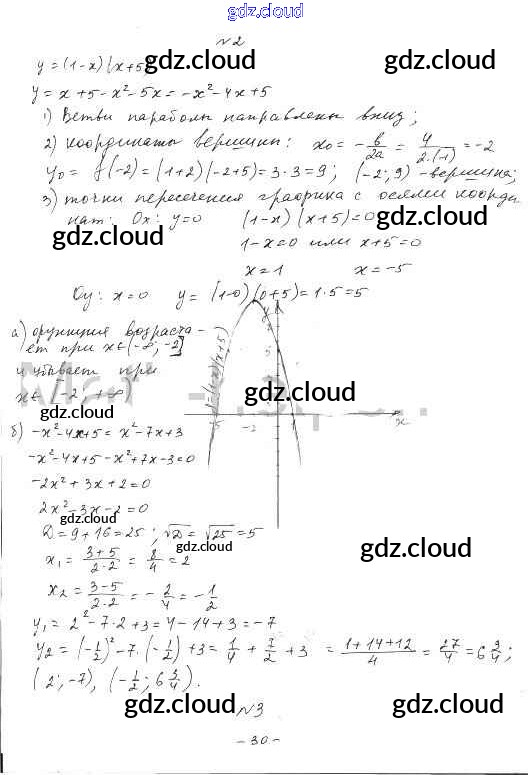 gdz.cloud
№2
gdz.cloud
y = (1-x)(x+5)
gdz.cloud
y = x+5-x²-5x = -x²-4x+5
1) Ветви параболы направлены вниз;
2) координаты вершины: x₀ = -b/2a = 4/2·(-1) = -2
y₀ = f(-2) = (1+2)(-2+5) = 3·3 = 9; (-2; 9) - вершина;
3) точки пересечения графика с осями коорди
нат: Ox: y=0 (1-x)(x+5)=0
gdz.cloud gdz.cloud
1-x=0 или x+5=0
x=1 x=-5
Oy: x=0 y = (1-0)(0+5) = 1·5 = 5
gdz.cloud
а) функция возраста-
ет при x∈(-∞; -2]
и убывает при
x∈ -2; +∞
y=(1-x)(x+5)
y
5
-5 -2 x
gdz.cloud gdz.cloud
б) -x²-4x+5 = x²-7x+3
-x²-4x+5-x²+7x-3=0
gdz.cloud
-2x²+3x+2=0
2x²-3x-2=0
gdz.cloud
D=9+16=25; √D=√25=5
gdz.cloud gdz.cloud
x₁ = 3+5/2·2 = 8/4 = 2
x₂ = 3-5/2·2 = -2/4 = -1/2
y₁ = 2²-7·2+3 = 4-14+3 = -7
y₂ = (-1/2)²-7·(-1/2)+3 = 1/4 + 7/2 + 3 = 1+14+12/4 = 27/4 = 6 3/4;
gdz.cloud
(2; -7), (-1/2; 6 3/4).
gdz.cloud gdz.cloud
№3
- 30 -